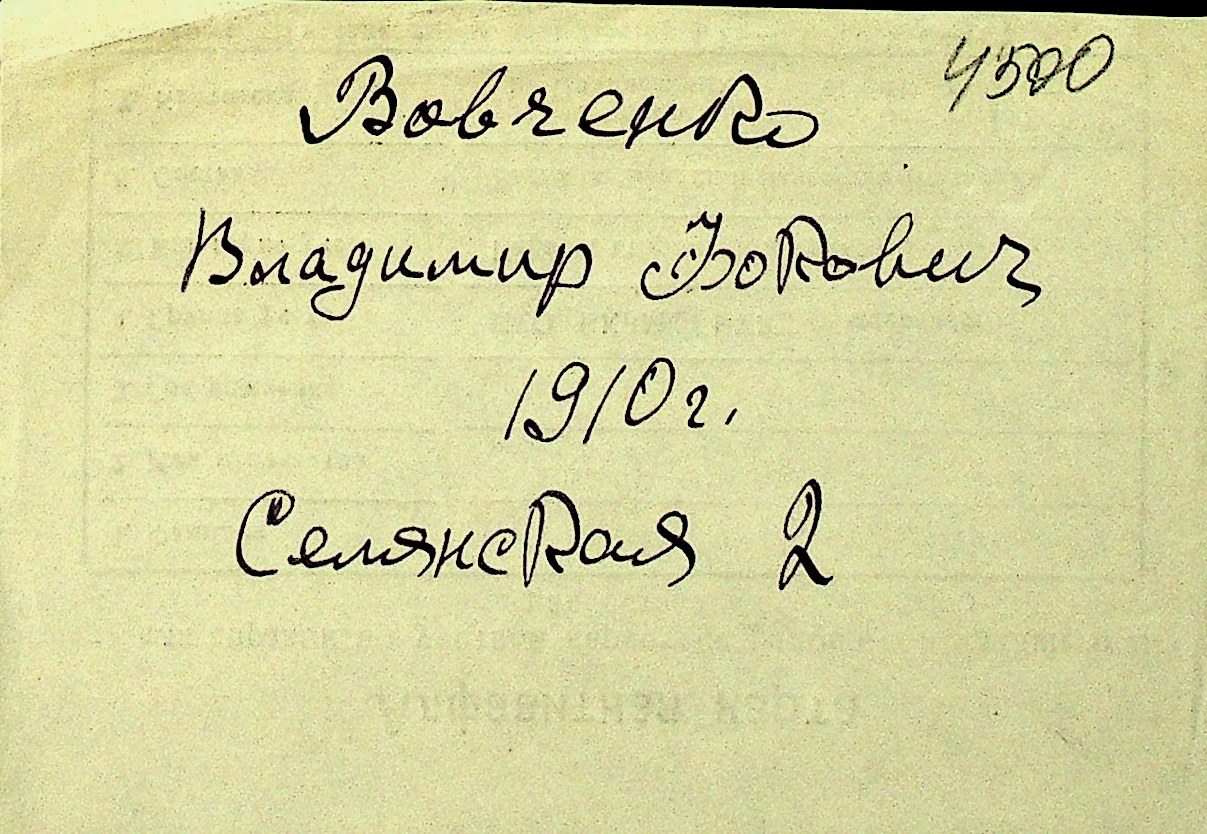 4500
Вовченко
Владимир Вокович
1910 г.
Селянская 2